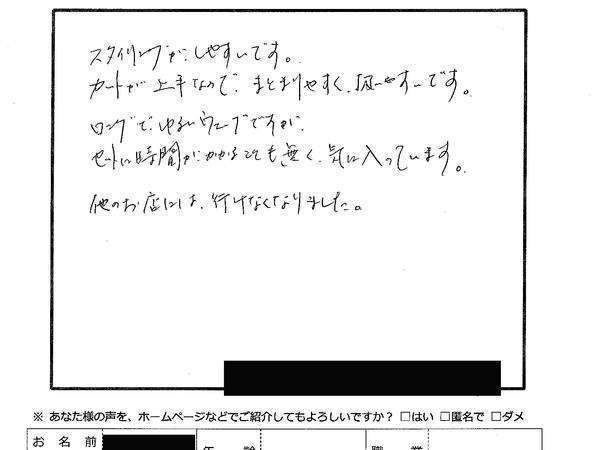 スタイリングが、しやすいです。
カットが上手なので、まとまりやすく、扱いやすいです。
ロングで、ゆるいウェーブですが、
セットに時間がかかることも無く、気に入っています。
他のお店には、行けなくなりました。
※ あなた様の声を、ホームページなどでご紹介してもよろしいですか？ □はい □匿名で □ダメ
お 名 前 年 齢 職 業